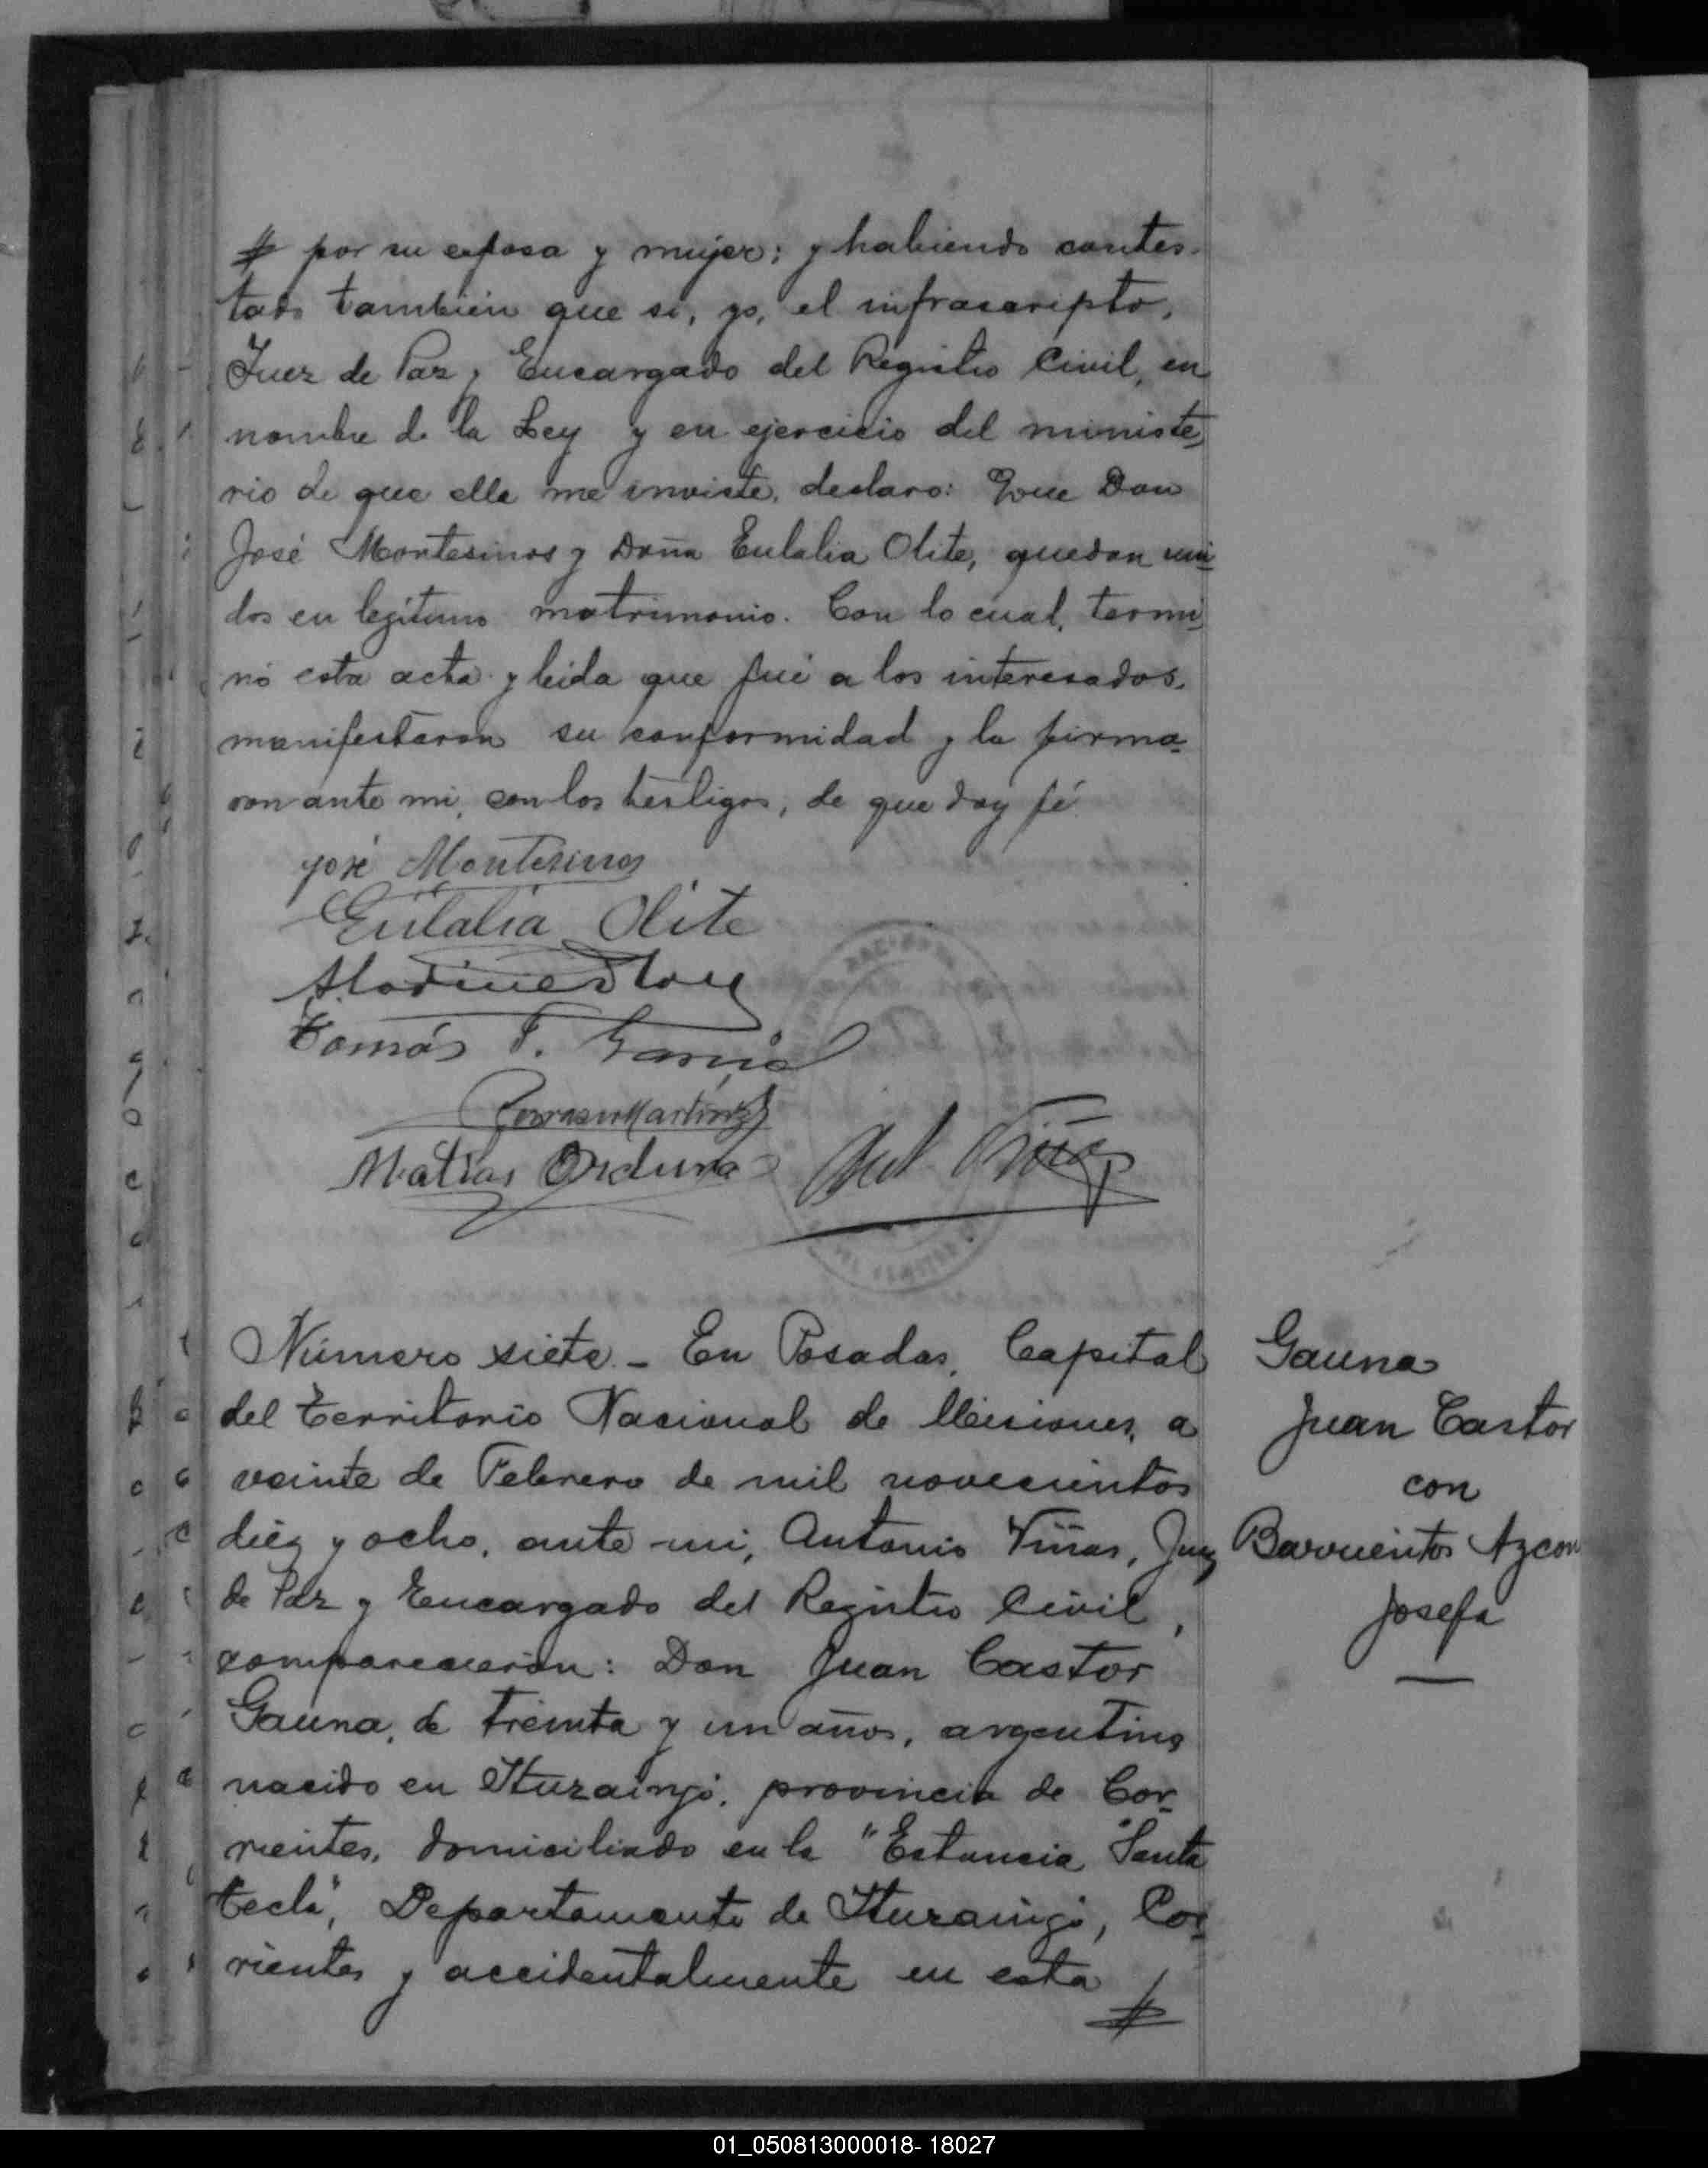 # por su esposa y mujer; y habiendo contes-
tado tambien que si, yo, el infrascripto,
Juez de Paz y Encargado del Registro Civil, en
nombre de la Ley y en ejercicio del ministe-
rio de que ella me inviste, declaro: Que Don
José Montesinos y Doña Eulalia Olite, quedan uni-
dos en legítimo matrimonio. Con lo cual, termi-
nó esta acta y leida que fué a los interesados,
manifestaron su conformidad y la firma-
ron ante mi, con los testigos, de que doy fé.
José Montesinos
Eulalia Olite
Tomás F. García
Matias Orduna
Número siete.- En Posadas, Capital
del Territorio Nacional de Misiones, a
veinte de Febrero de mil novecientos
diez y ocho, ante mi, Antonio Viñas, Juez
de Paz y Encargado del Registro Civil,
comparecieron: Don Juan Castor
Gauna, de treinta y un años, argentino
nacido en Ituzaingó, provincia de Cor-
rientes, domiciliado en la "Estancia Santa
Tecla", Departamento de Ituzaingó, Cor-
rientes y accidentalmente en esta #
Gauna
Juan Castor
con
Barrientos Azcon
Josefa
01_050813000018- 18027